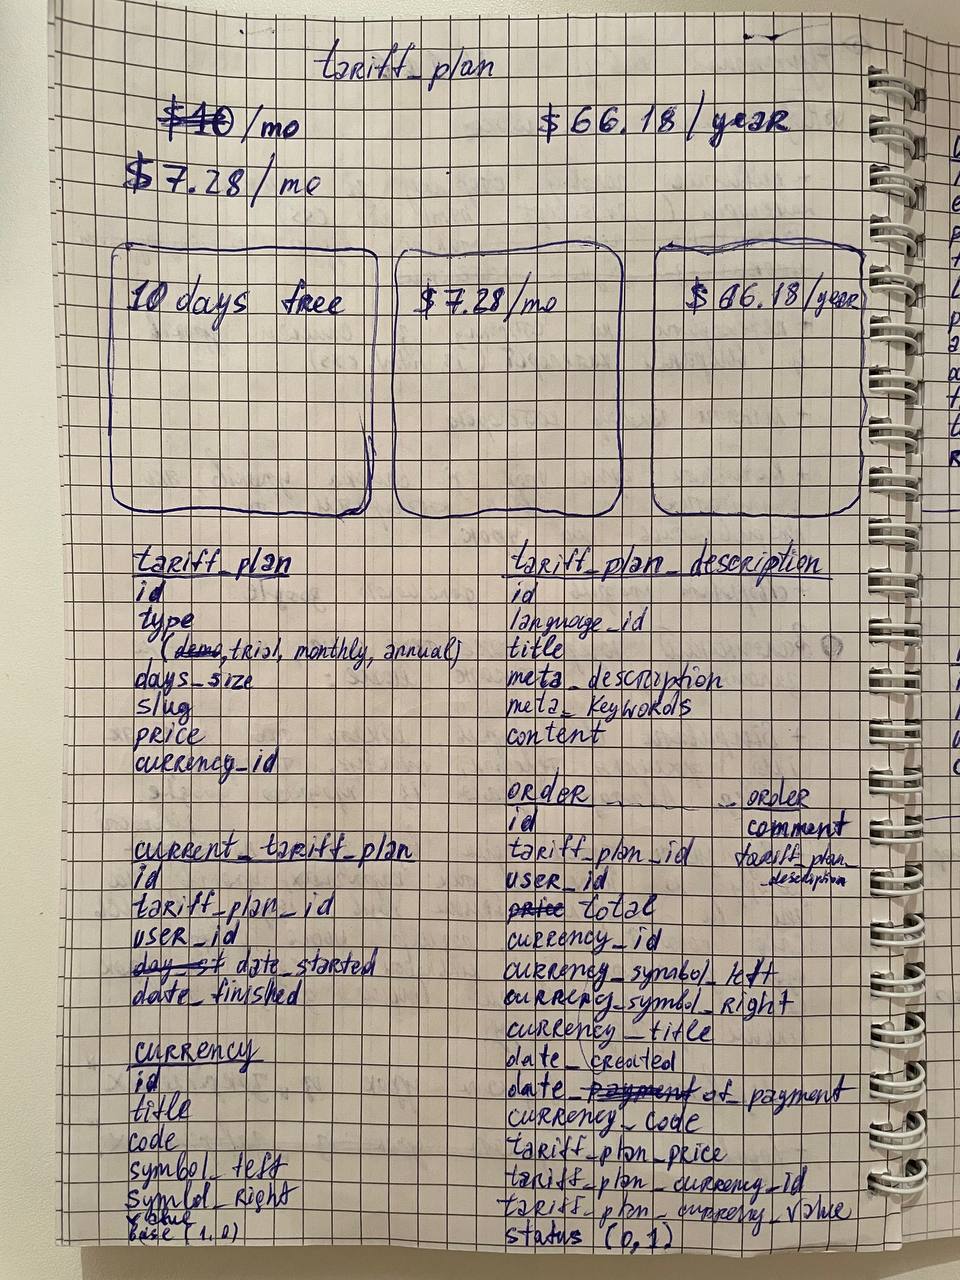 tariff_plan
$40/mo
$66.18/year
$7.28/mo
10 days free
$7.28/mo
$66.18/year
tariff_plan
id
type
(demo, trial, monthly, annual)
days_size
slug
price
currency_id
current_tariff_plan
id
tariff_plan_id
user_id
day_st date_started
date_finished
currency
id
title
code
symbol_left
symbol_right
value
base (1,0)
tariff_plan_description
id
language_id
title
meta_description
meta_keywords
content
order
id
tariff_plan_id
user_id
price total
currency_id
currency_symbol_left
currency_symbol_right
currency_title
date_created
date_payment of_payment
currency_code
tariff_plan_price
tariff_plan_currency_id
tariff_plan_currency_value
status (0,1)
order
comment
tariff_plan_
description